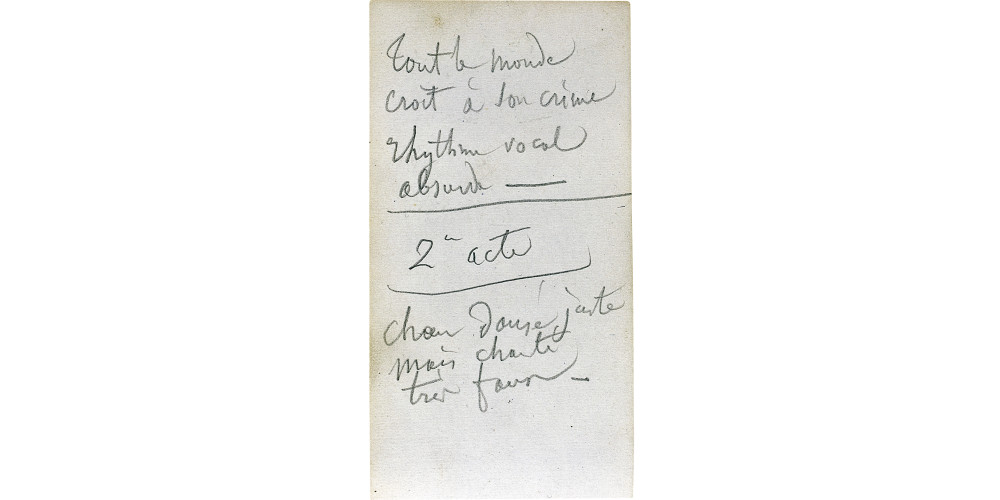 Tout le monde
croit à son crime
rhythme vocal
absurde —
2e acte
chœur dansé juste
mais chanté
très faux —